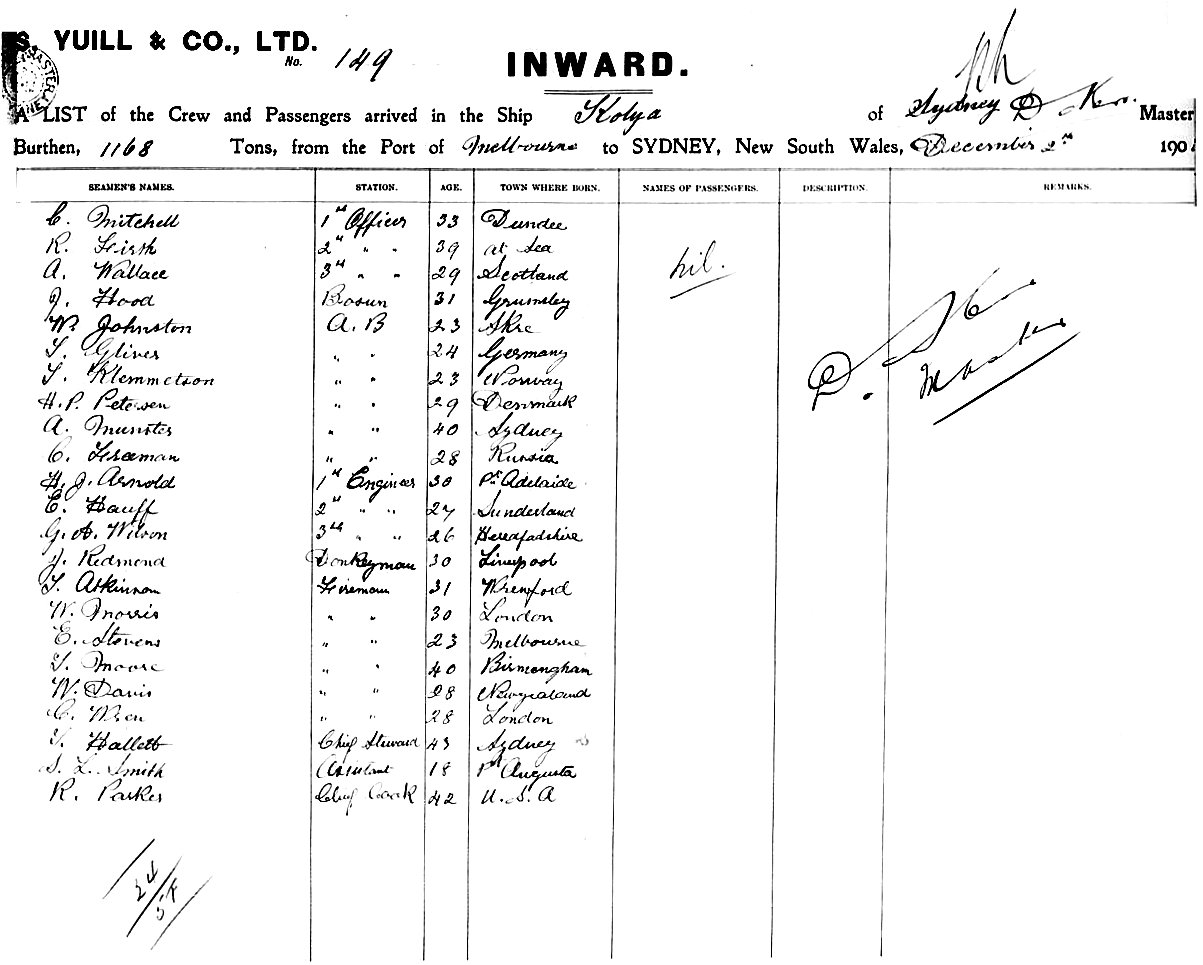 S. YUILL & CO., LTD.
No. 149
INWARD.
A LIST of the Crew and Passengers arrived in the Ship Kolya of Sydney D Master
Burthen, 1168 Tons, from the Port of Melbourne to SYDNEY, New South Wales, December 2nd 190
SEAMEN'S NAMES. STATION. AGE. TOWN WHERE BORN. NAMES OF PASSENGERS. DESCRIPTION. REMARKS.
C. Mitchell 1st Officer 33 Dundee
R. Firth 2nd " " 39 at Sea
A. Wallace 3rd " " 29 Scotland nil.
J. Hood Bosun 31 Grumsley
W. Johnston A.B 23
T. Gliver " " 24 Germany
T. Klemmetson " " 23 Norway
H. P. Petersen " " 29 Denmark
A. Munster " " 40 Sydney
C. Freeman " " 28 Russia
H. J. Arnold 1st Engineer 30 Pt Adelaide
E. Hauff 2nd " " 27 Sunderland
G. A. Wilson 3rd " " 26 Herefadshire
J. Redmond Donkeyman 30 Liverpool
T. Atkinson Fireman 31
W. Morris " " 30 London
E. Stevens " " 23 Melbourne
T. Moore " " 40 Birmengham
W. Davis " " 28 Newzealand
C. Wren " " 28 London
T. Hallett Chief Steward 43 Sydney
S. L. Smith Assistant 18 Pt Augusta
R. Parker Chief Cook 42 U.S.A
D.
Master
24/54